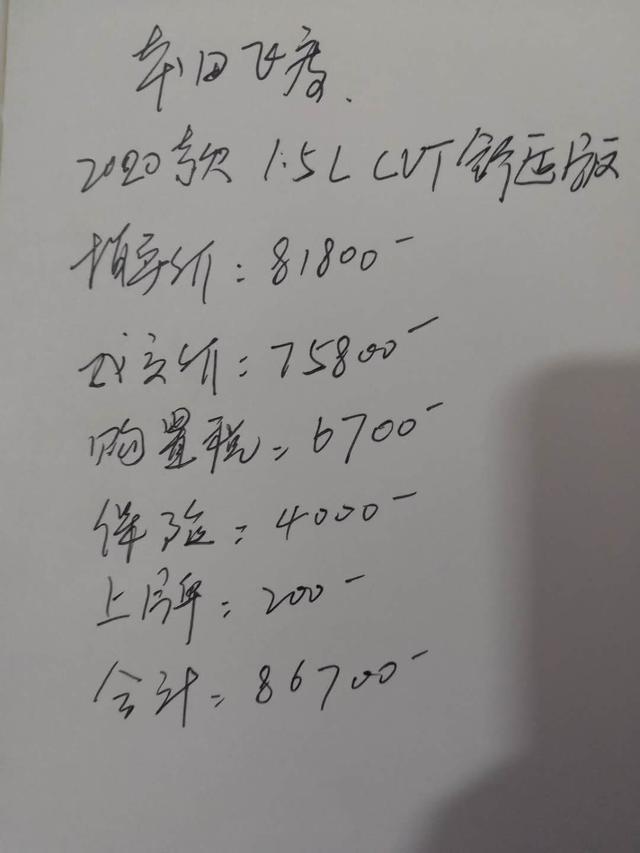 本田飞度.
2020款 1.5L CVT舒适版
指导价:81800-
成交价:75800-
购置税:6700-
保险:4000-
上牌:200-
合计:86700-